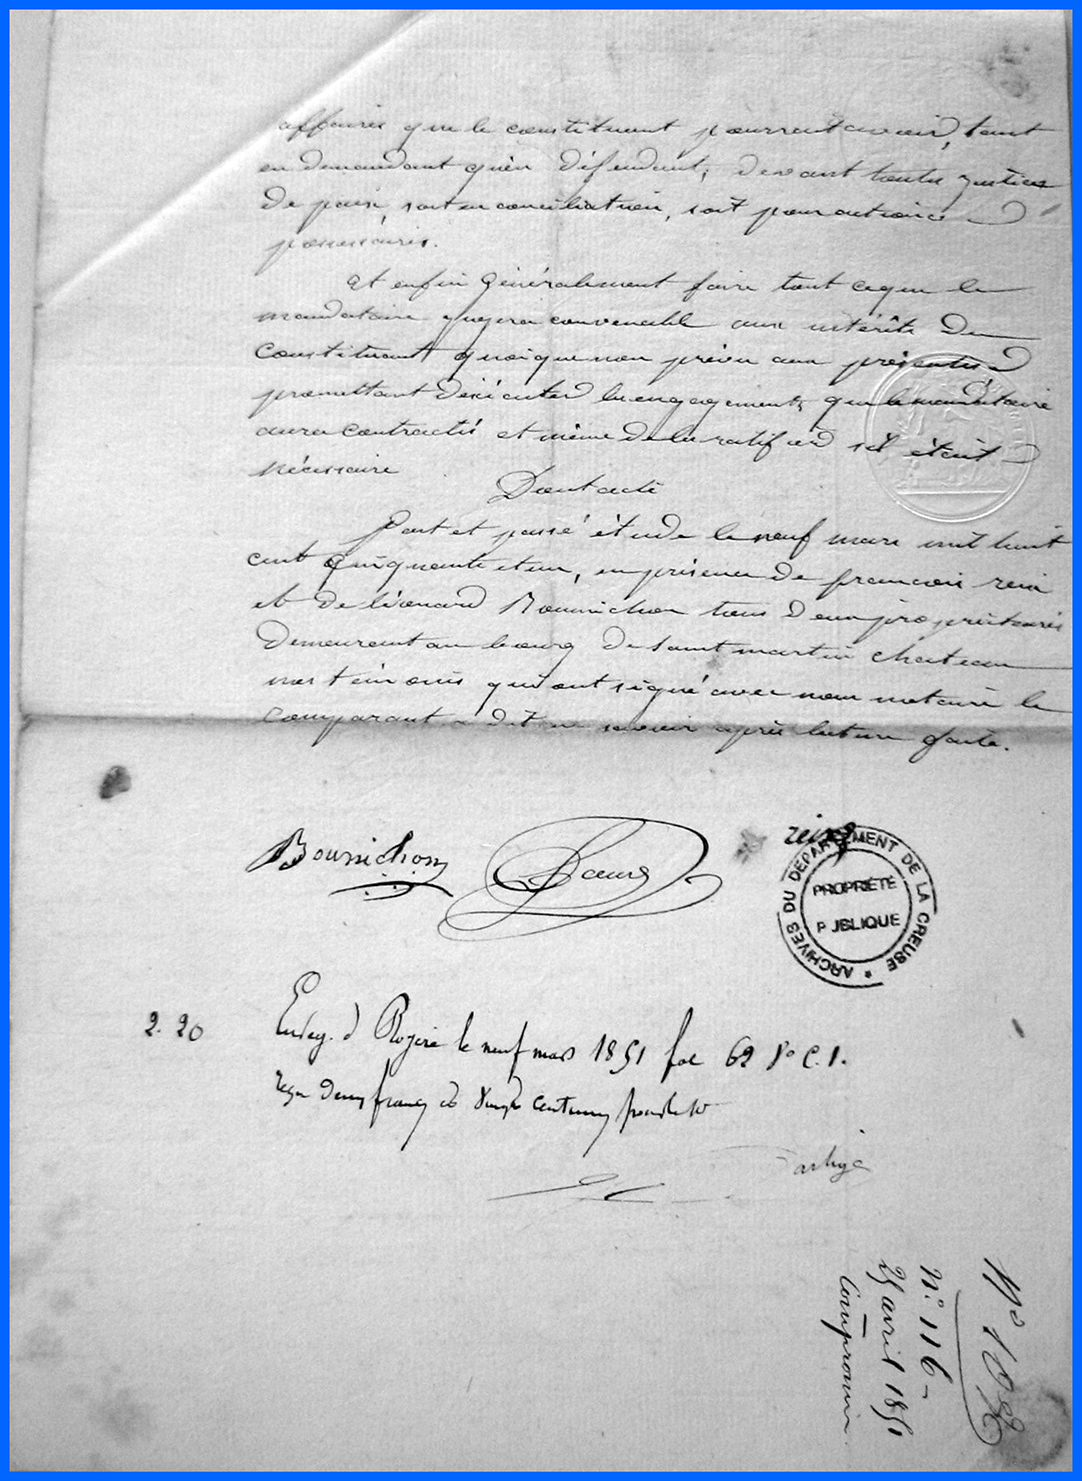 affaires que le constituant pourrait avoir, tant
en demandant qu'en défendant, devant toutes justices
de paix, soit en conciliation, soit pour
possessoires.
et enfin généralement faire tout ce que le
mandataire jugera convenable aux intérêts du
constituant quoique non prévu aux présentes
promettant d'éxécuter les engagements que le mandataire
aura contractés et même de les ratifier s'il était
nécessaire
Dont acte
fait et passé étude le neuf mars mil huit
cent cinquante et un, en présence de françois
et de léonard Bounichon tous deux propriétaires
demeurant au bourg de saint martin chateau
nos témoins qui ont signé avec nous notaire le
comparant a dit ne savoir après lecture faite.
Bounichon
ARCHIVES DU DÉPARTEMENT DE LA CREUSE *
PROPRIÉTÉ
PUBLIQUE
2. 20
Enreg. à Royère le neuf mars 1851 fol 62 Vo C. 1.
reçu deux francs vingt centimes
No
No 116 -
25 avril 1851
Compromis